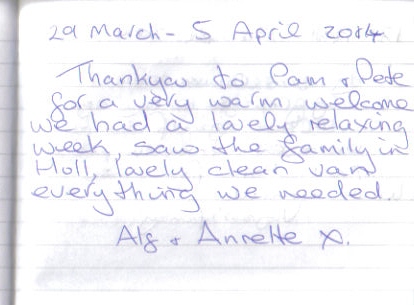 29 March - 5 April 2014
Thankyou to Pam & Pete
for a very warm welcome
we had a lovely relaxing
week, saw the family in
Holl, lovely clean van
everything we needed.
Alf & Annette x.